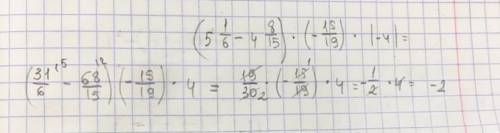 (5 1/6 - 4 8/15) · (-15/19) · |-4| =
(31/6 ⁵ - 68/15 ²) (-15/19) · 4 = 19/30 2 · (-15/19 ¹) · 4 = -1/2 · 4 = -2